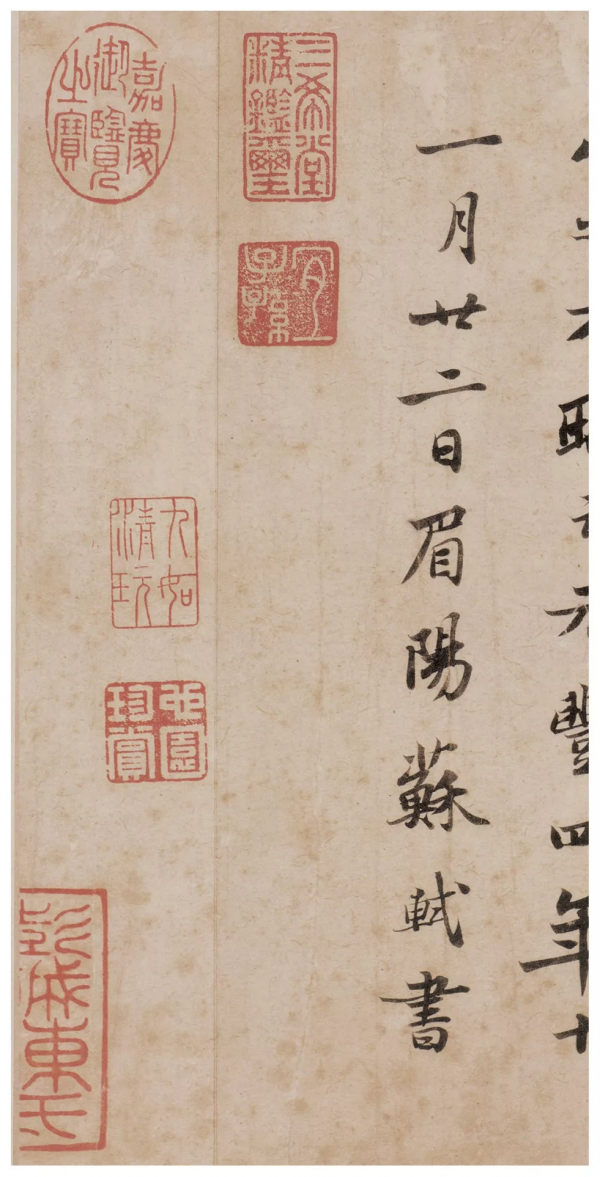 元豐四年十
一月廿二日眉陽蘇軾書
三希堂
精鑑璽
宜
子孫
嘉慶
御覽
之寶
九如
清玩
也園
珍賞